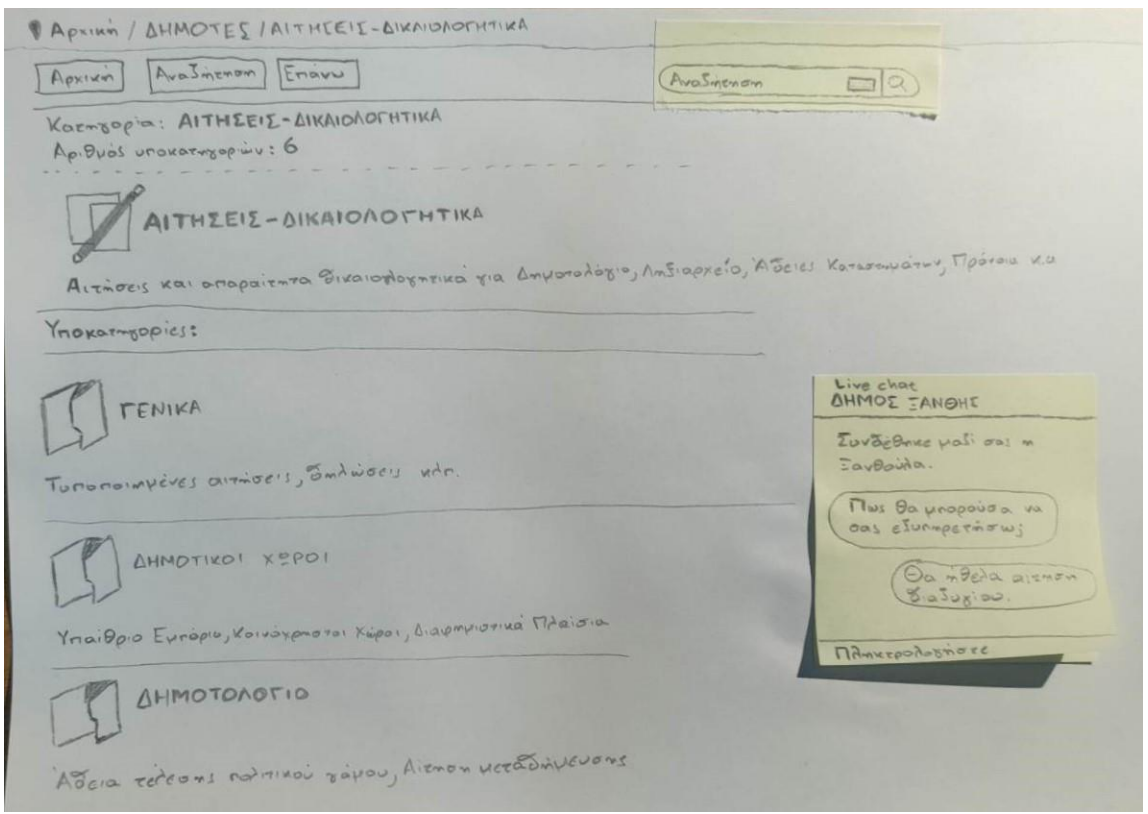 Αρχική / ΔΗΜΟΤΕΣ / ΑΙΤΗΣΕΙΣ-ΔΙΚΑΙΟΛΟΓΗΤΙΚΑ
Αρχική Αναζήτηση Επάνω
Αναζήτηση
Κατηγορία: ΑΙΤΗΣΕΙΣ-ΔΙΚΑΙΟΛΟΓΗΤΙΚΑ
Αριθμός υποκατηγοριών: 6
ΑΙΤΗΣΕΙΣ-ΔΙΚΑΙΟΛΟΓΗΤΙΚΑ
Αιτήσεις και απαραίτητα δικαιολογητικά για Δημοτολόγιο, Ληξιαρχείο, Άδειες Καταστημάτων, Πρόνοια κ.α
Υποκατηγορίες:
ΓΕΝΙΚΑ
Τυποποιημένες αιτήσεις, δηλώσεις κλπ.
ΔΗΜΟΤΙΚΟΙ ΧΩΡΟΙ
Υπαίθριο Εμπόριο, Κοινόχρηστοι Χώροι, Διαφημιστικά Πλαίσια
ΔΗΜΟΤΟΛΟΓΙΟ
Άδεια τέλεσης πολιτικού γάμου, Αίτηση μεταδημευσης
Live chat
ΔΗΜΟΣ ΞΑΝΘΗΣ
Συνδέθηκε μαζί σας η
Ξανθούλα.
Πως θα μπορούσα να
σας εξυπηρετήσω;
Θα ήθελα αιτηση
διαζυγίου.
Πληκτρολογήστε